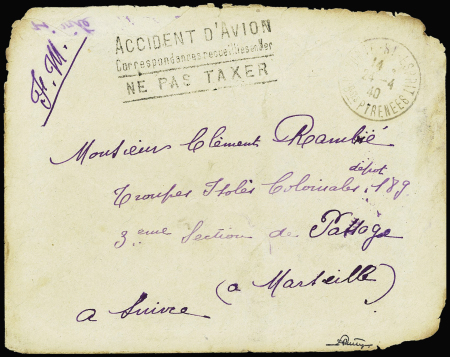 F. M.
ACCIDENT D'AVION
Correspondances recueillies en mer
NE PAS TAXER
14
24 - 4
40
PYRENEES
Monsieur Clément Rambié
dépot
Troupes Isolés Coloniales 189
3eme Section de Passage
(a Marseille)
a Suivre